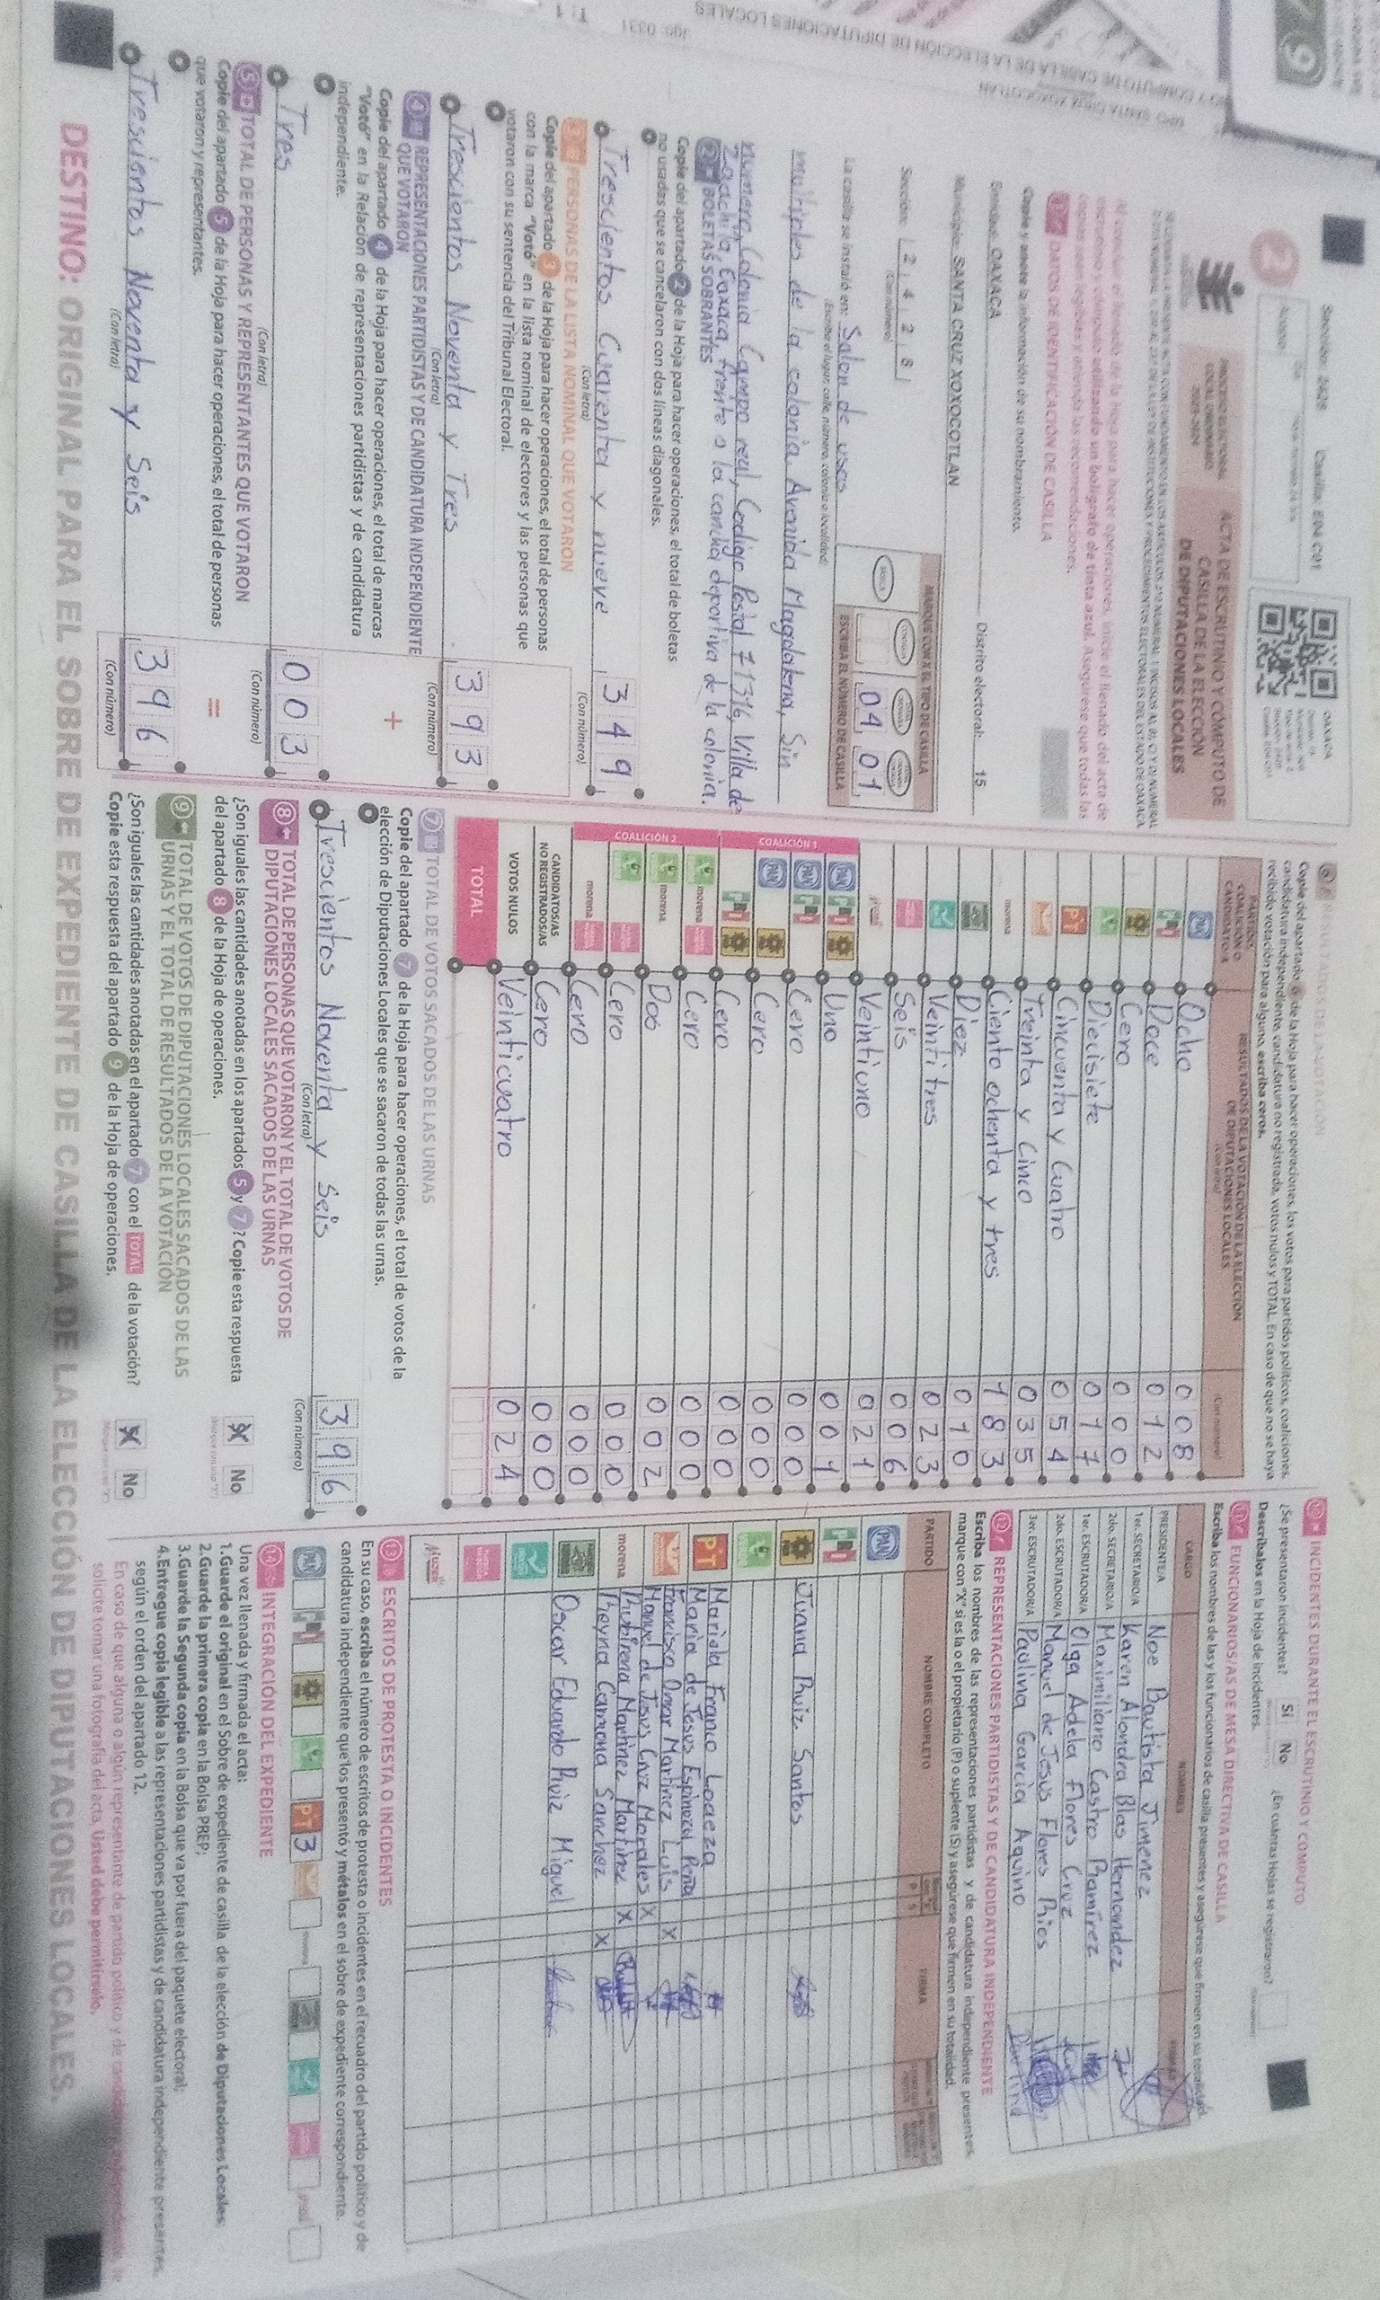 Sección: 2428 Casilla: E04 C01
OAXACA
PROCESO ELECTORAL
LOCAL ORDINARIO
2023-2024
ACTA DE ESCRUTINIO Y CÓMPUTO DE
CASILLA DE LA ELECCIÓN
DE DIPUTACIONES LOCALES
Al concluir el llenado de la Hoja para hacer operaciones, inicie el llenado del acta de
escrutinio y cómputo utilizando un bolígrafo de tinta azul. Asegúrese que todas las
copias sean legibles y atienda las recomendaciones.
1 DATOS DE IDENTIFICACIÓN DE CASILLA
Copie y anote la información de su nombramiento.
Entidad: OAXACA Distrito electoral: 15
Municipio: SANTA CRUZ XOXOCOTLAN
Sección: 2 4 2 8
(Con número)
MARQUE CON X EL TIPO DE CASILLA
ESCRIBA EL NÚMERO DE CASILLA
04 01
La casilla se instaló en: Salon de usos
(Escriba el lugar, calle, número, colonia o localidad)
multiples de la colonia, Avenida Magdalena, Sin
numero, Colonia Campo real, Codigo Postal 71316, Villa de
Zaachila, Oaxaca, frente a la cancha deportiva de la colonia.
2 BOLETAS SOBRANTES
Copie del apartado 2 de la Hoja para hacer operaciones, el total de boletas
no usadas que se cancelaron con dos líneas diagonales.
Trescientos Cuarenta y nueve 349
(Con letra) (Con número)
3 PERSONAS DE LA LISTA NOMINAL QUE VOTARON
Copie del apartado 3 de la Hoja para hacer operaciones, el total de personas
con la marca "Votó" en la lista nominal de electores y las personas que
votaron con su sentencia del Tribunal Electoral.
Trescientos Noventa y Tres 393
(Con letra) (Con número)
4 REPRESENTACIONES PARTIDISTAS Y DE CANDIDATURA INDEPENDIENTE
QUE VOTARON
Copie del apartado 4 de la Hoja para hacer operaciones, el total de marcas
"Votó" en la Relación de representaciones partidistas y de candidatura
independiente.
+
Tres 003
(Con letra) (Con número)
5 TOTAL DE PERSONAS Y REPRESENTANTES QUE VOTARON
Copie del apartado 5 de la Hoja para hacer operaciones, el total de personas
que votaron y representantes.
=
Trescientos Noventa y Seis 396
(Con letra) (Con número)
6 RESULTADOS DE LA VOTACIÓN
Copie del apartado 6 de la Hoja para hacer operaciones, los votos para partidos políticos, coaliciones,
candidatura independiente, candidatura no registrada, votos nulos y TOTAL. En caso de que no se haya
recibido votación para alguno, escriba ceros.
PARTIDO, COALICIÓN O CANDIDATO/A
RESULTADOS DE LA VOTACIÓN DE LA ELECCIÓN
DE DIPUTACIONES LOCALES
(Con letra) (Con número)
PAN Ocho 008
PRI Doce 012
Cero 000
Diecisiete 017
PT Cincuenta y Cuatro 054
Treinta y Cinco 035
morena Ciento ochenta y tres 183
Diez 010
Veintitres 023
Seis 006
Veintiuno 021
COALICIÓN 1
PAN PRI Uno 001
PAN PRI Cero 000
PAN Cero 000
PRI Cero 000
COALICIÓN 2
morena Cero 000
morena Dos 002
Cero 000
morena Cero 000
CANDIDATOS/AS
NO REGISTRADOS/AS Cero 000
VOTOS NULOS Veinticuatro 024
TOTAL
7 TOTAL DE VOTOS SACADOS DE LAS URNAS
Copie del apartado 7 de la Hoja para hacer operaciones, el total de votos de la
elección de Diputaciones Locales que se sacaron de todas las urnas.
Trescientos Noventa y Seis 396
(Con letra) (Con número)
8 TOTAL DE PERSONAS QUE VOTARON Y EL TOTAL DE VOTOS DE
DIPUTACIONES LOCALES SACADOS DE LAS URNAS
¿Son iguales las cantidades anotadas en los apartados 5 y 7? Copie esta respuesta
del apartado 8 de la Hoja de operaciones.
X No
9 TOTAL DE VOTOS DE DIPUTACIONES LOCALES SACADOS DE LAS
URNAS Y EL TOTAL DE RESULTADOS DE LA VOTACIÓN
¿Son iguales las cantidades anotadas en el apartado 7 con el TOTAL de la votación?
Copie esta respuesta del apartado 9 de la Hoja de operaciones.
X No
10 INCIDENTES DURANTE EL ESCRUTINIO Y CÓMPUTO
¿Se presentaron incidentes? Sí No ¿En cuántas Hojas se registraron?
Descríbalos en la Hoja de incidentes.
11 FUNCIONARIOS/AS DE MESA DIRECTIVA DE CASILLA
Escriba los nombres de las y los funcionarios de casilla presentes y asegúrese que firmen en su totalidad
CARGO NOMBRES
PRESIDENTE/A Noe Bautista Jimenez
1er. SECRETARIO/A Karen Alondra Blas Hernandez
2do. SECRETARIO/A Maximiliano Castro Ramírez
1er. ESCRUTADOR/A Olga Adela Flores Cruz
2do. ESCRUTADOR/A Manuel de Jesus Flores Rios
3er. ESCRUTADOR/A Paulina Garcia Aquino
12 REPRESENTACIONES PARTIDISTAS Y DE CANDIDATURA INDEPENDIENTE
Escriba los nombres de las representaciones partidistas y de candidatura independiente presentes,
marque con "X" si es la o el propietario (P) o suplente (S) y asegúrese que firmen en su totalidad.
PARTIDO NOMBRE COMPLETO P S FIRMA
PAN
PRI
Juana Ruiz Santos
PT Mariela Franco Loaeza
Maria de Jesus Espinoza Peña
Francisco Omar Martinez Luis X
Manuel de Jesus Cruz Morales X
morena Rubirena Martinez Martinez X
Theyna Carmona Sanchez X
Oscar Eduardo Ruiz Miguel
13 ESCRITOS DE PROTESTA O INCIDENTES
En su caso, escriba el número de escritos de protesta o incidentes en el recuadro del partido político y de
candidatura independiente que los presentó y métalos en el sobre de expediente correspondiente.
PAN PRI PT 3
14 INTEGRACIÓN DEL EXPEDIENTE
Una vez llenada y firmada el acta:
1. Guarde el original en el Sobre de expediente de casilla de la elección de Diputaciones Locales;
2. Guarde la primera copia en la Bolsa PREP;
3. Guarde la Segunda copia en la Bolsa que va por fuera del paquete electoral;
4. Entregue copia legible a las representaciones partidistas y de candidatura independiente presentes,
según el orden del apartado 12.
En caso de que alguna o algún representante de partido político y de candidatura independiente le
solicite tomar una fotografía del acta, Usted debe permitírselo.
DESTINO: ORIGINAL PARA EL SOBRE DE EXPEDIENTE DE CASILLA DE LA ELECCIÓN DE DIPUTACIONES LOCALES.